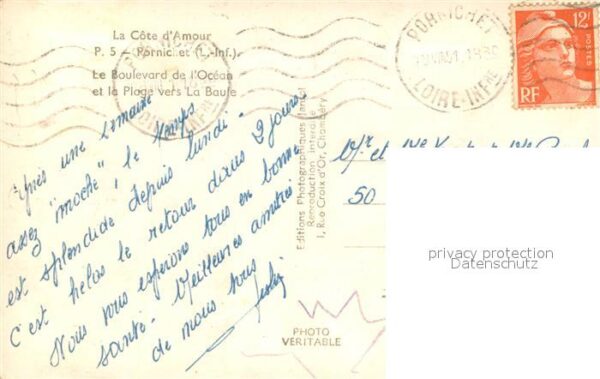 La Côte d'Amour
P. 5 — Pornichet (L.-Inf.)
Le Boulevard de l'Océan
et la Plage vers La Baule
Après une semaine
assez "moche", le temps
est splendide depuis lundi -
c'est hélas le retour dans 2 jours
Nous vous espérons tous en bonne
santé - Meilleures amitiés
de nous tous
Editions Photographiques
Reproduction interdite
1, Rue Croix d'Or, Chambéry
PHOTO
VERITABLE
PORNICHET
LOIRE-INFRE
PORNICHET
LOIRE-INFRE
12F
POSTES
RF
Mr et Me
50
privacy protection
Datenschutz